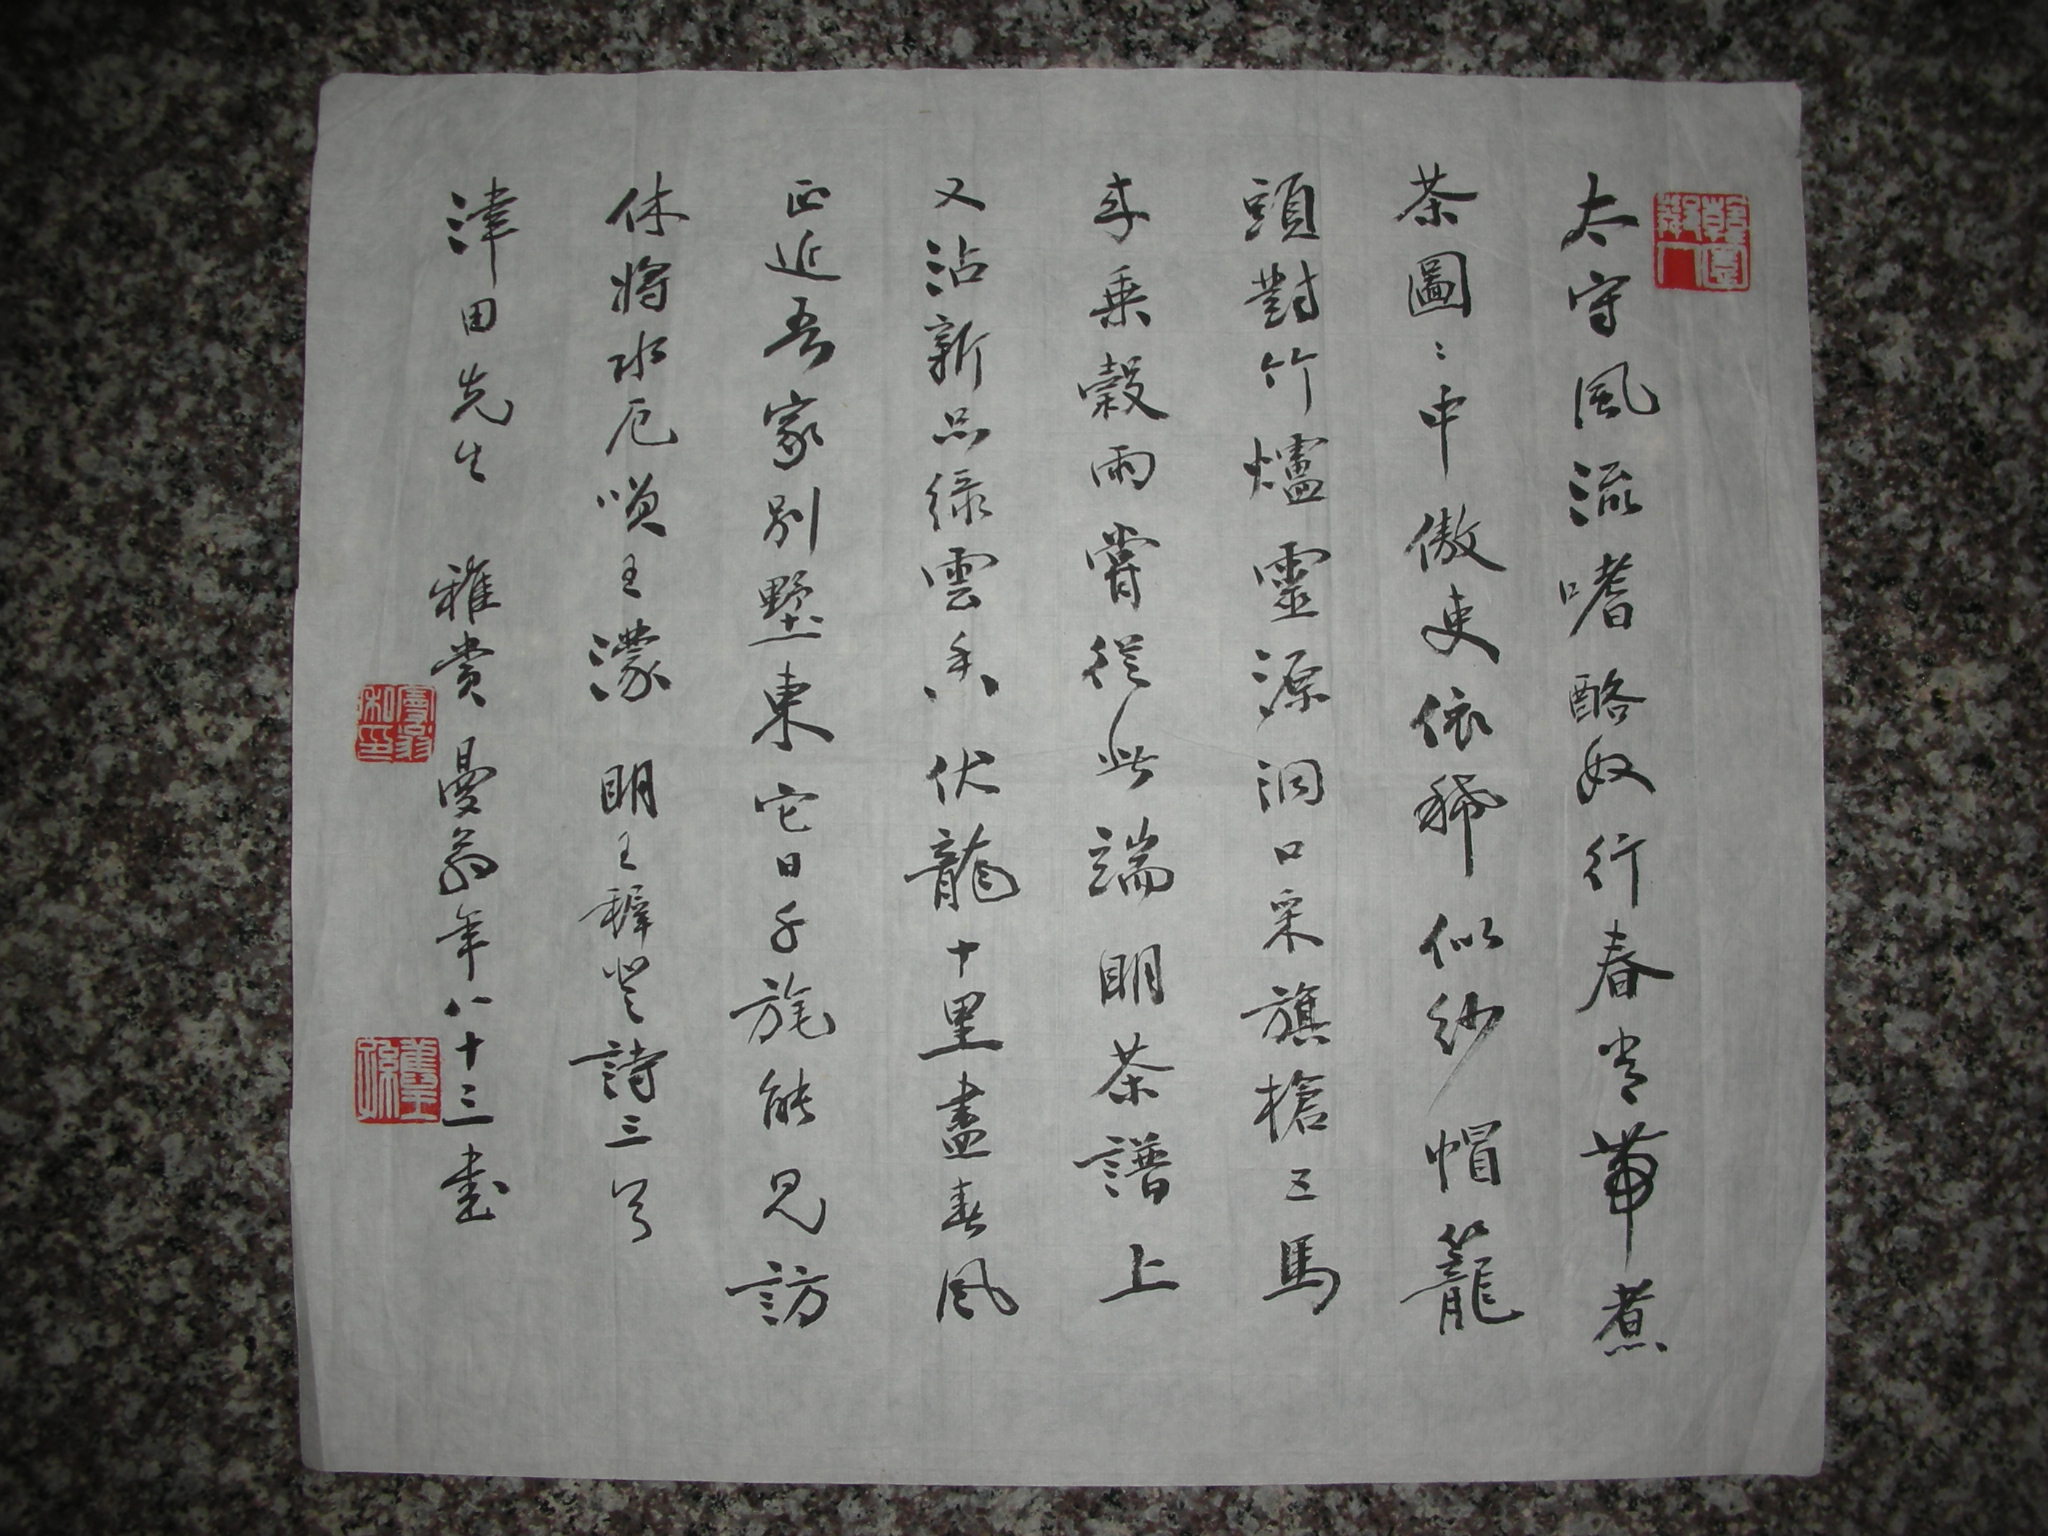 太守風流嗜酪奴行春常帶煮
茶圖〻中傲吏依稀似紗帽籠
頭對竹爐靈源洞口采旗槍五馬
來乘穀雨嘗從此端明茶譜上
又沾新品綠雲香伏龍十里盡春風
正近吾家別墅東它日千旄能見訪
休將水厄唄王濛 明王穉登詩三首
津田先生 雅賞 曼翁年八十三書
曼翁